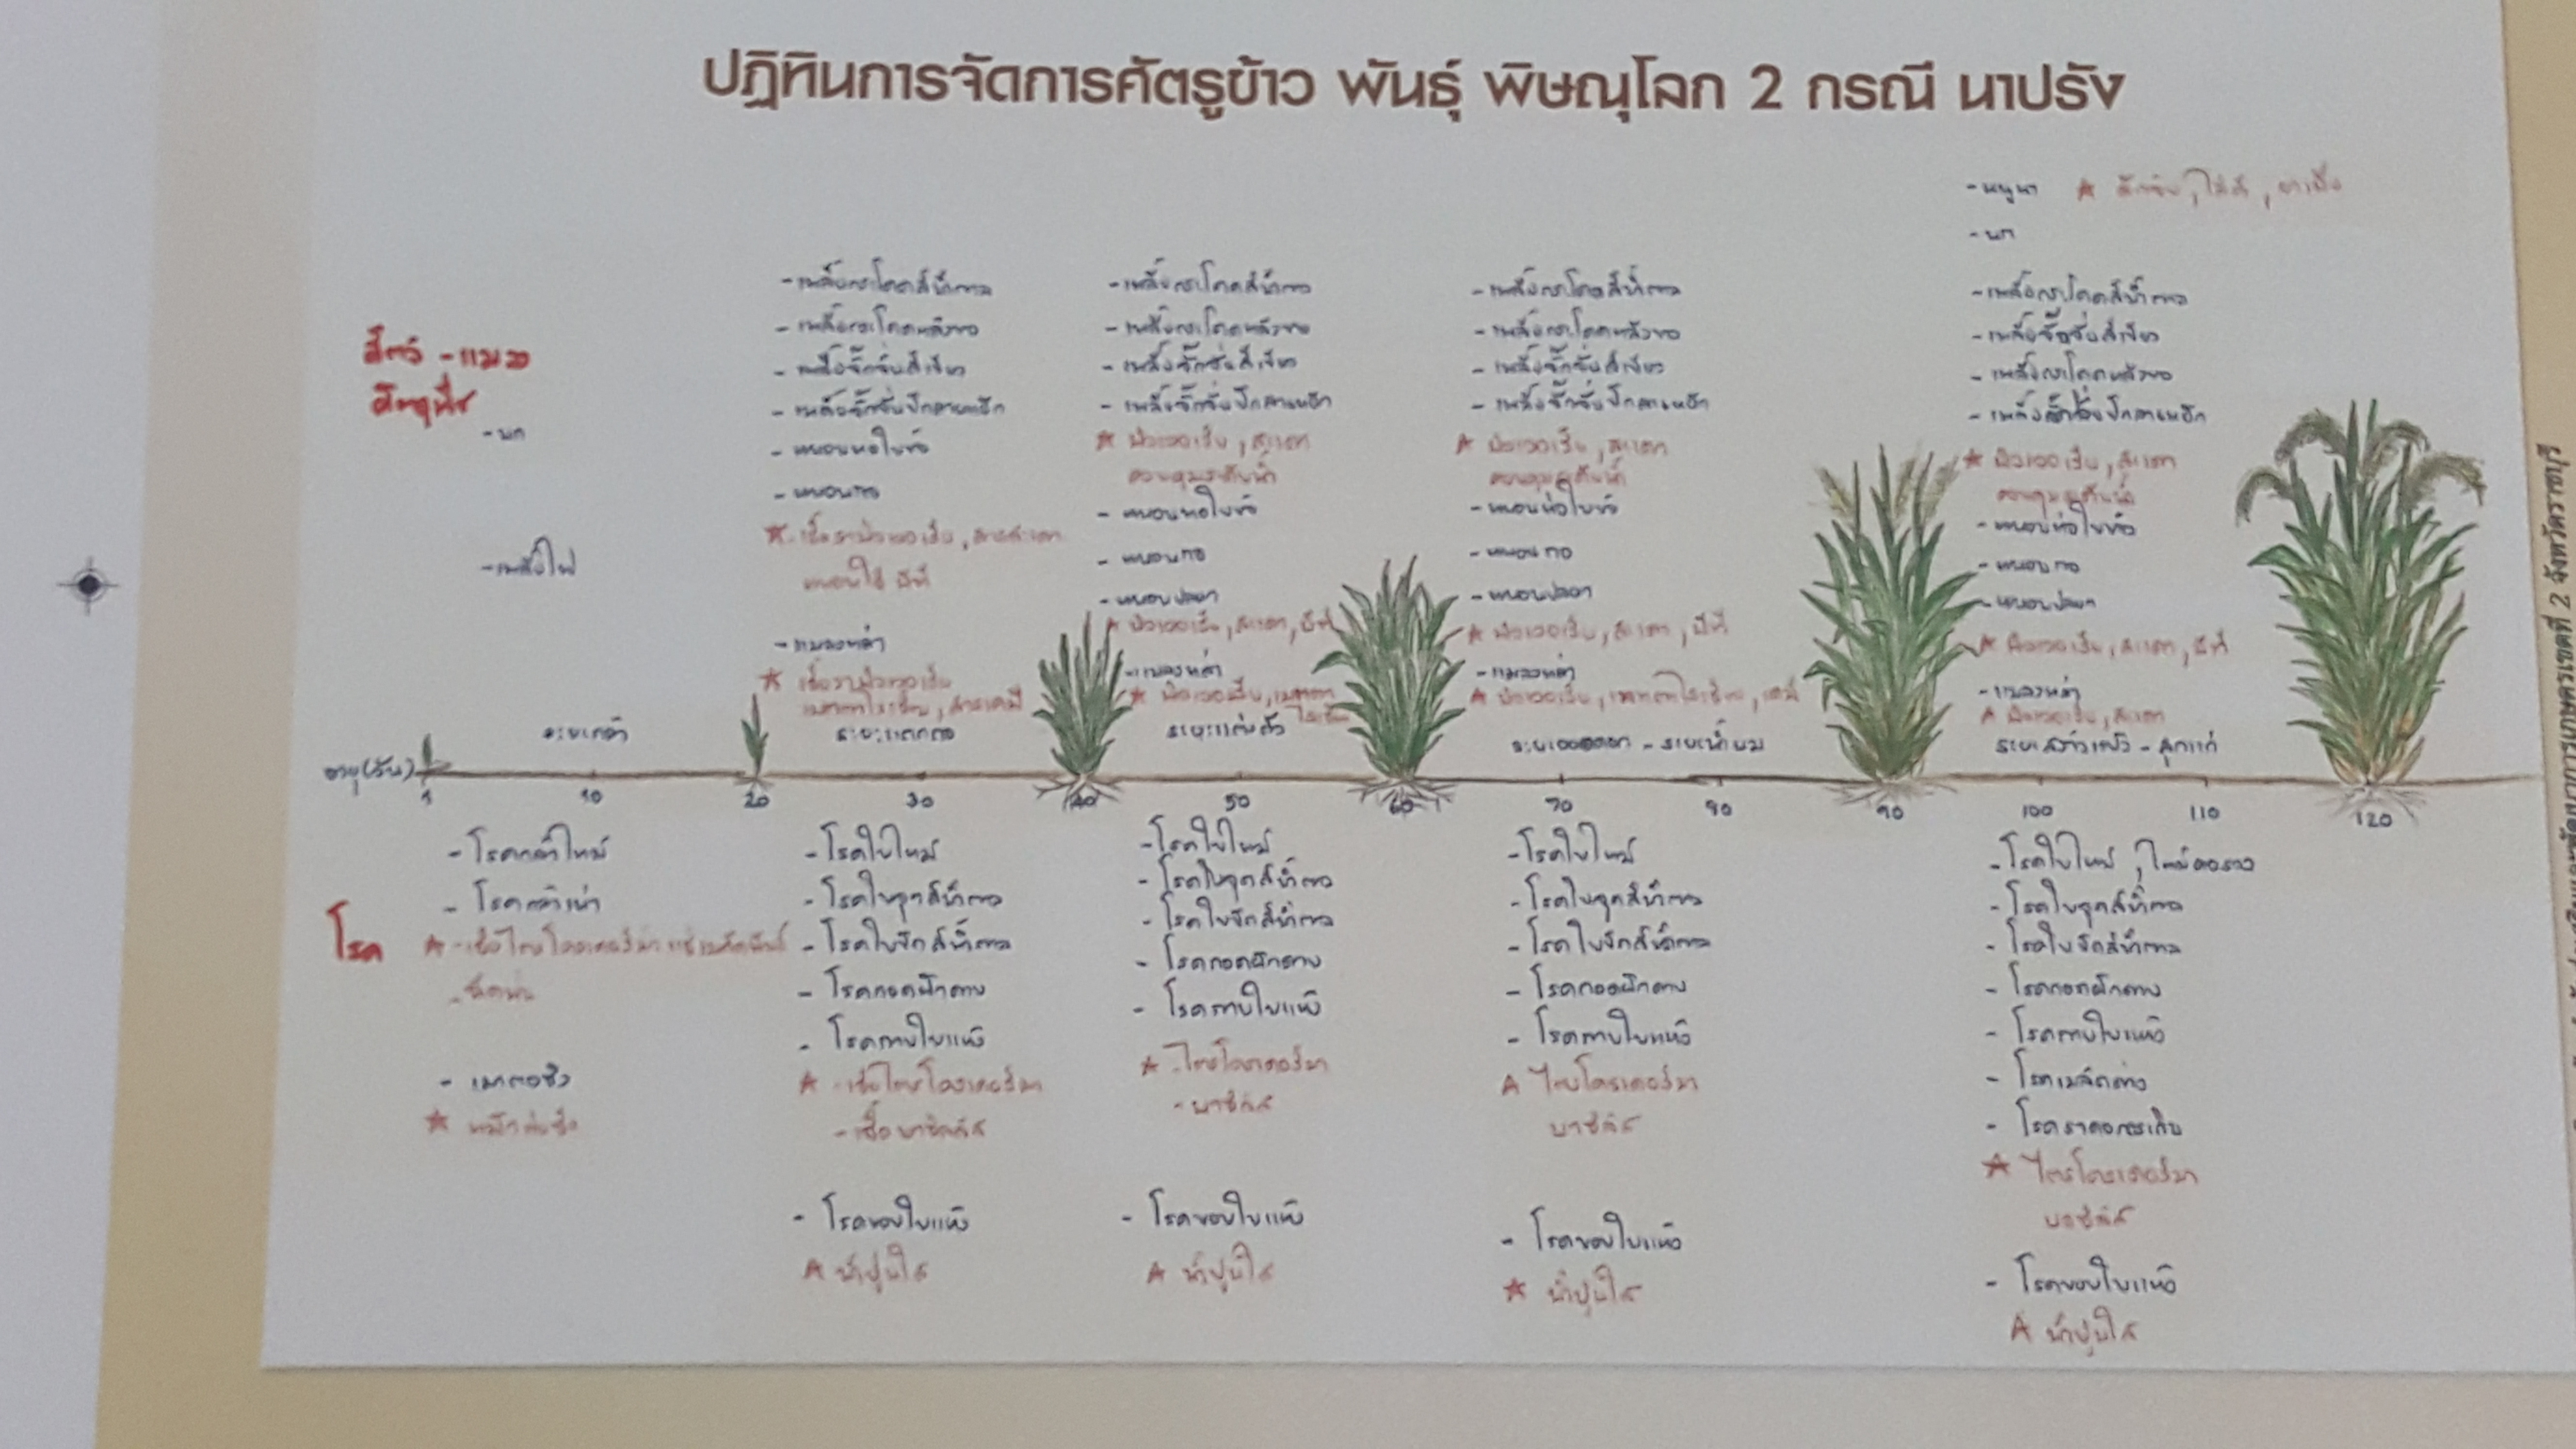 ปฏิทินการจัดการศัตรูข้าว พันธุ์ พิษณุโลก 2 กรณี นาปรัง
สัตว์ - แมลง
ศัตรูพืช
- นก
- เพลี้ยไฟ
- เพลี้ยกระโดดสีน้ำตาล
- เพลี้ยกระโดดหลังขาว
- เพลี้ยจั๊กจั่นสีเขียว
- เพลี้ยจั๊กจั่นปีกลายหยัก
- หนอนห่อใบข้าว
- หนอนกอ
★ - เชื้อราบิวเวอเรีย, สารสะเดา
หนอนใช้ บีที
- แมลงหล่า
★ เชื้อราบิวเวอเรีย
เมตตาไรเซียม, สารเคมี
- เพลี้ยกระโดดสีน้ำตาล
- เพลี้ยกระโดดหลังขาว
- เพลี้ยจั๊กจั่นสีเขียว
- เพลี้ยจั๊กจั่นปีกลายหยัก
★ บิวเวอเรีย, สะเดา
ควบคุมระดับน้ำ
- หนอนห่อใบข้าว
- หนอนกอ
- หนอนปลอก
★ บิวเวอเรีย, สะเดา, บีที
- แมลงหล่า
★ บิวเวอเรีย, เมตตา
ไรเซียม
- เพลี้ยกระโดดสีน้ำตาล
- เพลี้ยกระโดดหลังขาว
- เพลี้ยจั๊กจั่นสีเขียว
- เพลี้ยจั๊กจั่นปีกลายหยัก
★ บิวเวอเรีย, สะเดา
ควบคุมระดับน้ำ
- หนอนห่อใบข้าว
- หนอนกอ
- หนอนปลอก
★ บิวเวอเรีย, สะเดา, บีที
- แมลงหล่า
★ บิวเวอเรีย, เมตตาไรเซียม, เคมี
- หนูนา ★
- นก
- เพลี้ยกระโดดสีน้ำตาล
- เพลี้ยจั๊กจั่นสีเขียว
- เพลี้ยกระโดดหลังขาว
- เพลี้ยจั๊กจั่นปีกลายหยัก
★ บิวเวอเรีย, สะเดา
ควบคุมระดับน้ำ
- หนอนห่อใบข้าว
- หนอนกอ
- หนอนปลอก
★ บิวเวอเรีย, สะเดา, บีที
- แมลงหล่า
★ บิวเวอเรีย, สะเดา
ระยะกล้า ระยะแตกกอ ระยะแต่งตัว ระยะออกดอก - ระยะน้ำนม ระยะสร้างแป้ง - สุกแก่
อายุ(วัน) 1 10 20 30 40 50 60 70 80 90 100 110 120
โรค
- โรคกล้าไหม้
- โรคกล้าเน่า
★ - เชื้อไตรโคเดอร์มา แช่เมล็ดพันธุ์
- ฉีดพ่น
- เมาตอซัง
★ หมักตอซัง
- โรคใบไหม้
- โรคใบจุดสีน้ำตาล
- โรคใบขีดสีน้ำตาล
- โรคถอดฝักดาบ
- โรคกาบใบแห้ง
★ - เชื้อไตรโคเดอร์มา
- เชื้อบาซิลลัส
- โรคขอบใบแห้ง
★ น้ำปูนใส
- โรคใบไหม้
- โรคใบจุดสีน้ำตาล
- โรคใบขีดสีน้ำตาล
- โรคถอดฝักดาบ
- โรคกาบใบแห้ง
★ - ไตรโคเดอร์มา
- บาซิลัส
- โรคขอบใบแห้ง
★ น้ำปูนใส
- โรคใบไหม้
- โรคใบจุดสีน้ำตาล
- โรคใบขีดสีน้ำตาล
- โรคถอดฝักดาบ
- โรคกาบใบแห้ง
★ ไตรโคเดอร์มา
บาซิลัส
- โรคขอบใบแห้ง
★ น้ำปูนใส
- โรคใบไหม้, ไหม้คอรวง
- โรคใบจุดสีน้ำตาล
- โรคใบขีดสีน้ำตาล
- โรคถอดฝักดาบ
- โรคกาบใบแห้ง
- โรคเมล็ดด่าง
- โรคราดอกกระถิน
★ ไตรโคเดอร์มา
บาซิลัส
- โรคขอบใบแห้ง
★ น้ำปูนใส
เขตที่ 2 จังหวัดราชบุรี